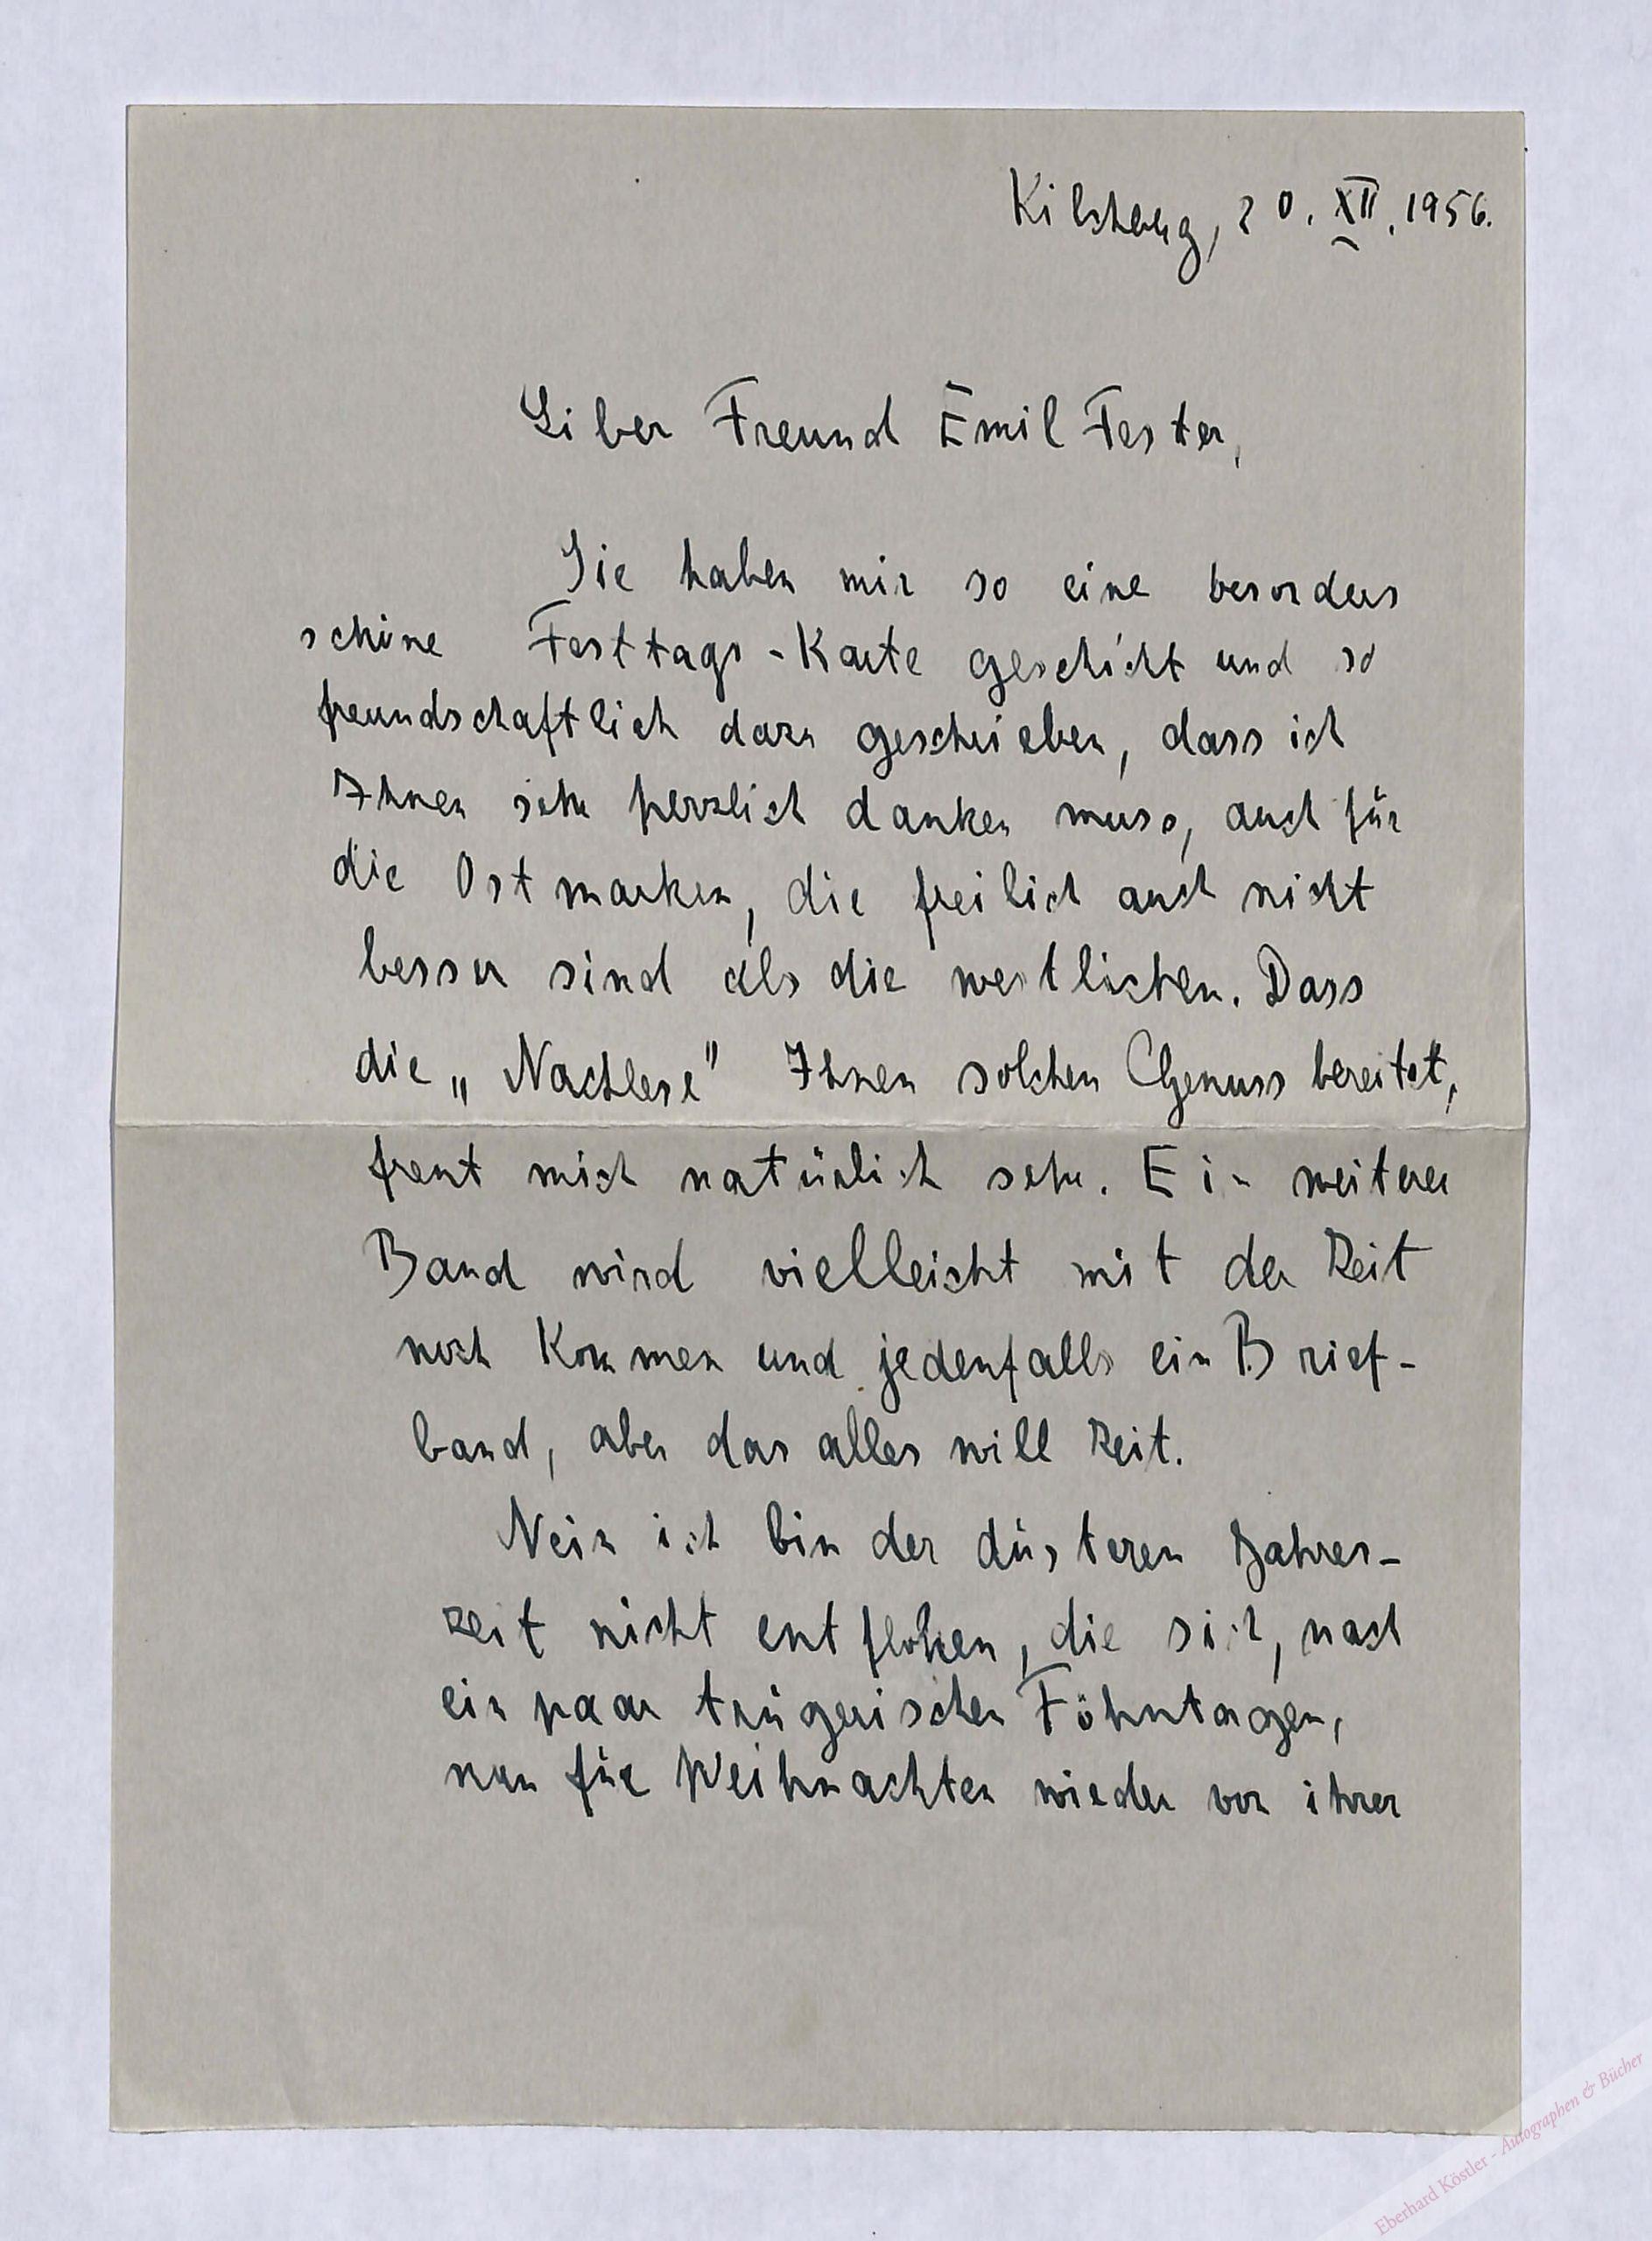 Kilchberg, 20. XII. 1956.
Liber Freund Emil Fester,
Sie haben mir so eine besonders
schöne Festtags-Karte geschickt und so
freundschaftlich dazu geschrieben, dass ich
Ihnen sehr herzlich danken muss, auch für
die Ostmarken, die freilich auch nicht
besser sind als die westlichen. Dass
die „Nachlese" Ihnen solchen Genuss bereitet,
freut mich natürlich sehr. Ein weiterer
Band wird vielleicht mit der Zeit
noch kommen und jedenfalls ein Brief-
band, aber das alles will Zeit.
Nein ich bin der düsteren Jahres-
zeit nicht entflohen, die sich, nach
ein paar trügerischen Föhntagen,
nun für Weihnachten wieder von ihrer
Eberhard Köstler - Autographen & Bücher